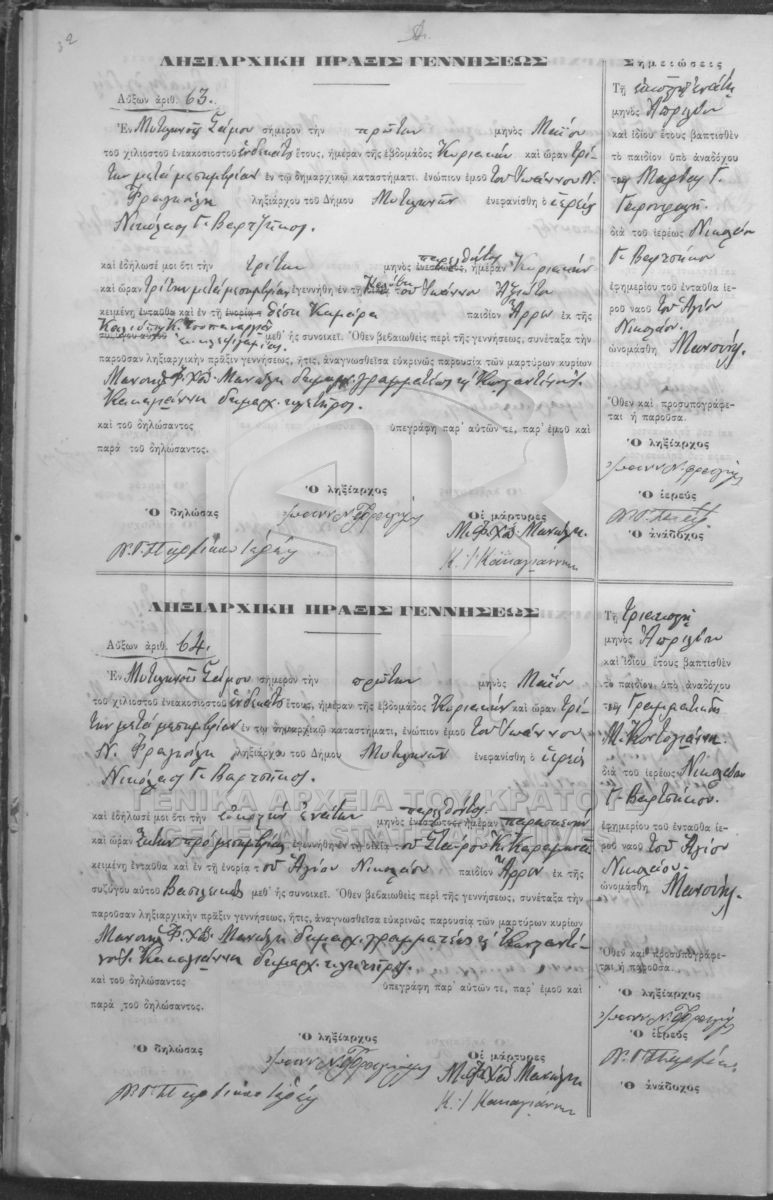 32
ΛΗΞΙΑΡΧΙΚΗ ΠΡΑΞΙΣ ΓΕΝΝΗΣΕΩΣ
Αὔξων ἀριθ. 63.
Ἐν Μυτιληνοῖς Σάμου σήμερον τὴν πρώτην μηνὸς Μαΐου
τοῦ χιλιοστοῦ ἐνεακοσιοστοῦ ἑνδεκάτου ἔτους, ἡμέραν τῆς ἑβδομάδος Κυριακὴν καὶ ὥραν τρί-
την μετὰ μεσημβρίαν ἐν τῷ δημαρχικῷ καταστήματι, ἐνώπιον ἐμοῦ τοῦ Ἰωάννου Ν.
ληξιάρχου τοῦ Δήμου Μυτιληνῶν ἐνεφανίσθη ὁ ἱερεὺς
Νικόλαος Γ.
καὶ ἐδήλωσέ μοι ὅτι τὴν τρίτην μηνὸς ἐνεστῶτος παρελθόντος, ἡμέραν Κυριακὴν
καὶ ὥραν τρίτην μετὰ μεσημβρίαν ἐγεννήθη ἐν τῇ τοῦ Ἰωάννου
κειμένῃ ἐνταῦθα καὶ ἐν τῇ ἐνορίᾳ θέσει Καμάρα παιδίον Ἄρρεν ἐκ τῆς
συζύγου αὐτοῦ μεθ᾽ ἧς συνοικεῖ. Ὅθεν βεβαιωθεὶς περὶ τῆς γεννήσεως, συνέταξα τὴν
παροῦσαν ληξιαρχικὴν πρᾶξιν γεννήσεως, ἥτις, ἀναγνωσθεῖσα εὐκρινῶς παρουσίᾳ τῶν μαρτύρων κυρίων
Μανουὴλ Φ. Χῶ Μανώλη δημαρχ. γραμματέως καὶ Κωνσταντίνου
Κακαγιάννη δημαρχ. κλητῆρος.
καὶ τοῦ δηλώσαντος ὑπεγράφη παρ᾽ αὐτῶν τε, παρ᾽ ἐμοῦ καὶ
παρὰ τοῦ δηλώσαντος.
Ὁ ληξίαρχος
Ὁ δηλώσας Οἱ μάρτυρες
Μ. Φ. Χῶ Μανώλη
Κ. Ι Κακαγιάννη
Σημειώσεις
Τῇ εἰκοστῇ ἐνάτῃ
μηνὸς Ἀπριλίου
καὶ ἰδίου ἔτους βαπτισθὲν
τὸ παιδίον ὑπὸ ἀναδόχου
τῆς Μαρίας Γ.
διὰ τοῦ ἱερέως Νικολάου
Γ.
ἐφημερίου τοῦ ἐνταῦθα ἱε-
ροῦ ναοῦ τοῦ Ἁγίου
Νικολάου.
ὠνομάσθη Μανουήλ.
Ὅθεν καὶ προσυπογράφε-
ται ἡ παροῦσα.
Ὁ ληξίαρχος
Ὁ ἱερεὺς
Ὁ ἀνάδοχος
ΛΗΞΙΑΡΧΙΚΗ ΠΡΑΞΙΣ ΓΕΝΝΗΣΕΩΣ
Αὔξων ἀριθ. 64.
Ἐν Μυτιληνοῖς Σάμου σήμερον τὴν πρώτην μηνὸς Μαΐου
τοῦ χιλιοστοῦ ἐνεακοσιοστοῦ ἑνδεκάτου ἔτους, ἡμέραν τῆς ἑβδομάδος Κυριακὴν καὶ ὥραν τρί-
την μετὰ μεσημβρίαν ἐν τῷ δημαρχικῷ καταστήματι, ἐνώπιον ἐμοῦ τοῦ Ἰωάννου
Ν. ληξιάρχου τοῦ Δήμου Μυτιληνῶν ἐνεφανίσθη ὁ ἱερεὺς
Νικόλαος Γ.
ΓΕΝΙΚΑ ΑΡΧΕΙΑ ΤΟΥ ΚΡΑΤΟΥΣ
GENERAL STATE ARCHIVES
καὶ ἐδήλωσέ μοι ὅτι τὴν εἰκοστὴν ἐνάτην μηνὸς ἐνεστῶτος παρελθόντος, ἡμέραν παρασκευὴν
καὶ ὥραν ἕκτην πρὸ μεσημβρίας ἐγεννήθη ἐν τῇ οἰκίᾳ τοῦ Σταύρου Κ.
κειμένῃ ἐνταῦθα καὶ ἐν τῇ ἐνορίᾳ τοῦ Ἁγίου Νικολάου παιδίον Ἄρρεν ἐκ τῆς
συζύγου αὐτοῦ Βασιλικῆς μεθ᾽ ἧς συνοικεῖ. Ὅθεν βεβαιωθεὶς περὶ τῆς γεννήσεως, συνέταξα τὴν
παροῦσαν ληξιαρχικὴν πρᾶξιν γεννήσεως, ἥτις, ἀναγνωσθεῖσα εὐκρινῶς παρουσίᾳ τῶν μαρτύρων κυρίων
Μανουὴλ Φ. Χῶ Μανώλη δημαρχ. γραμματέως καὶ Κωνσταντί-
νου Κακαγιάννη δημαρχ. κλητῆρος.
καὶ τοῦ δηλώσαντος ὑπεγράφη παρ᾽ αὐτῶν τε, παρ᾽ ἐμοῦ καὶ
παρὰ τοῦ δηλώσαντος.
Ὁ ληξίαρχος
Ὁ δηλώσας Οἱ μάρτυρες
Μ. Φ. Χῶ Μανώλη
Κ. Ι Κακαγιάννη
Τῇ τριακοστῇ
μηνὸς Ἀπριλίου
καὶ ἰδίου ἔτους βαπτισθὲν
τὸ παιδίον ὑπὸ ἀναδόχου
τῆς Γραμματικῆς
Μ. Κοντογιάννη.
διὰ τοῦ ἱερέως Νικολάου
Γ.
ἐφημερίου τοῦ ἐνταῦθα ἱε-
ροῦ ναοῦ τοῦ Ἁγίου
Νικολάου.
ὠνομάσθη Μανουήλ.
Ὅθεν καὶ προσυπογράφε-
ται ἡ παροῦσα.
Ὁ ληξίαρχος
Ὁ ἱερεὺς
Ὁ ἀνάδοχος